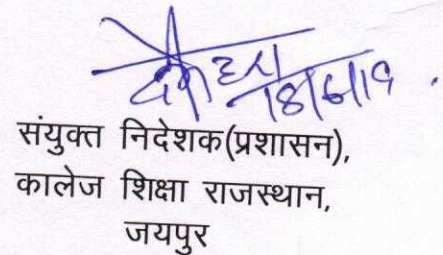 18/6/19
संयुक्त निदेशक(प्रशासन),
कालेज शिक्षा राजस्थान,
जयपुर